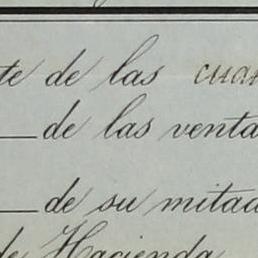 te de las cuar
de las venta
de su mitad
de Hacienda